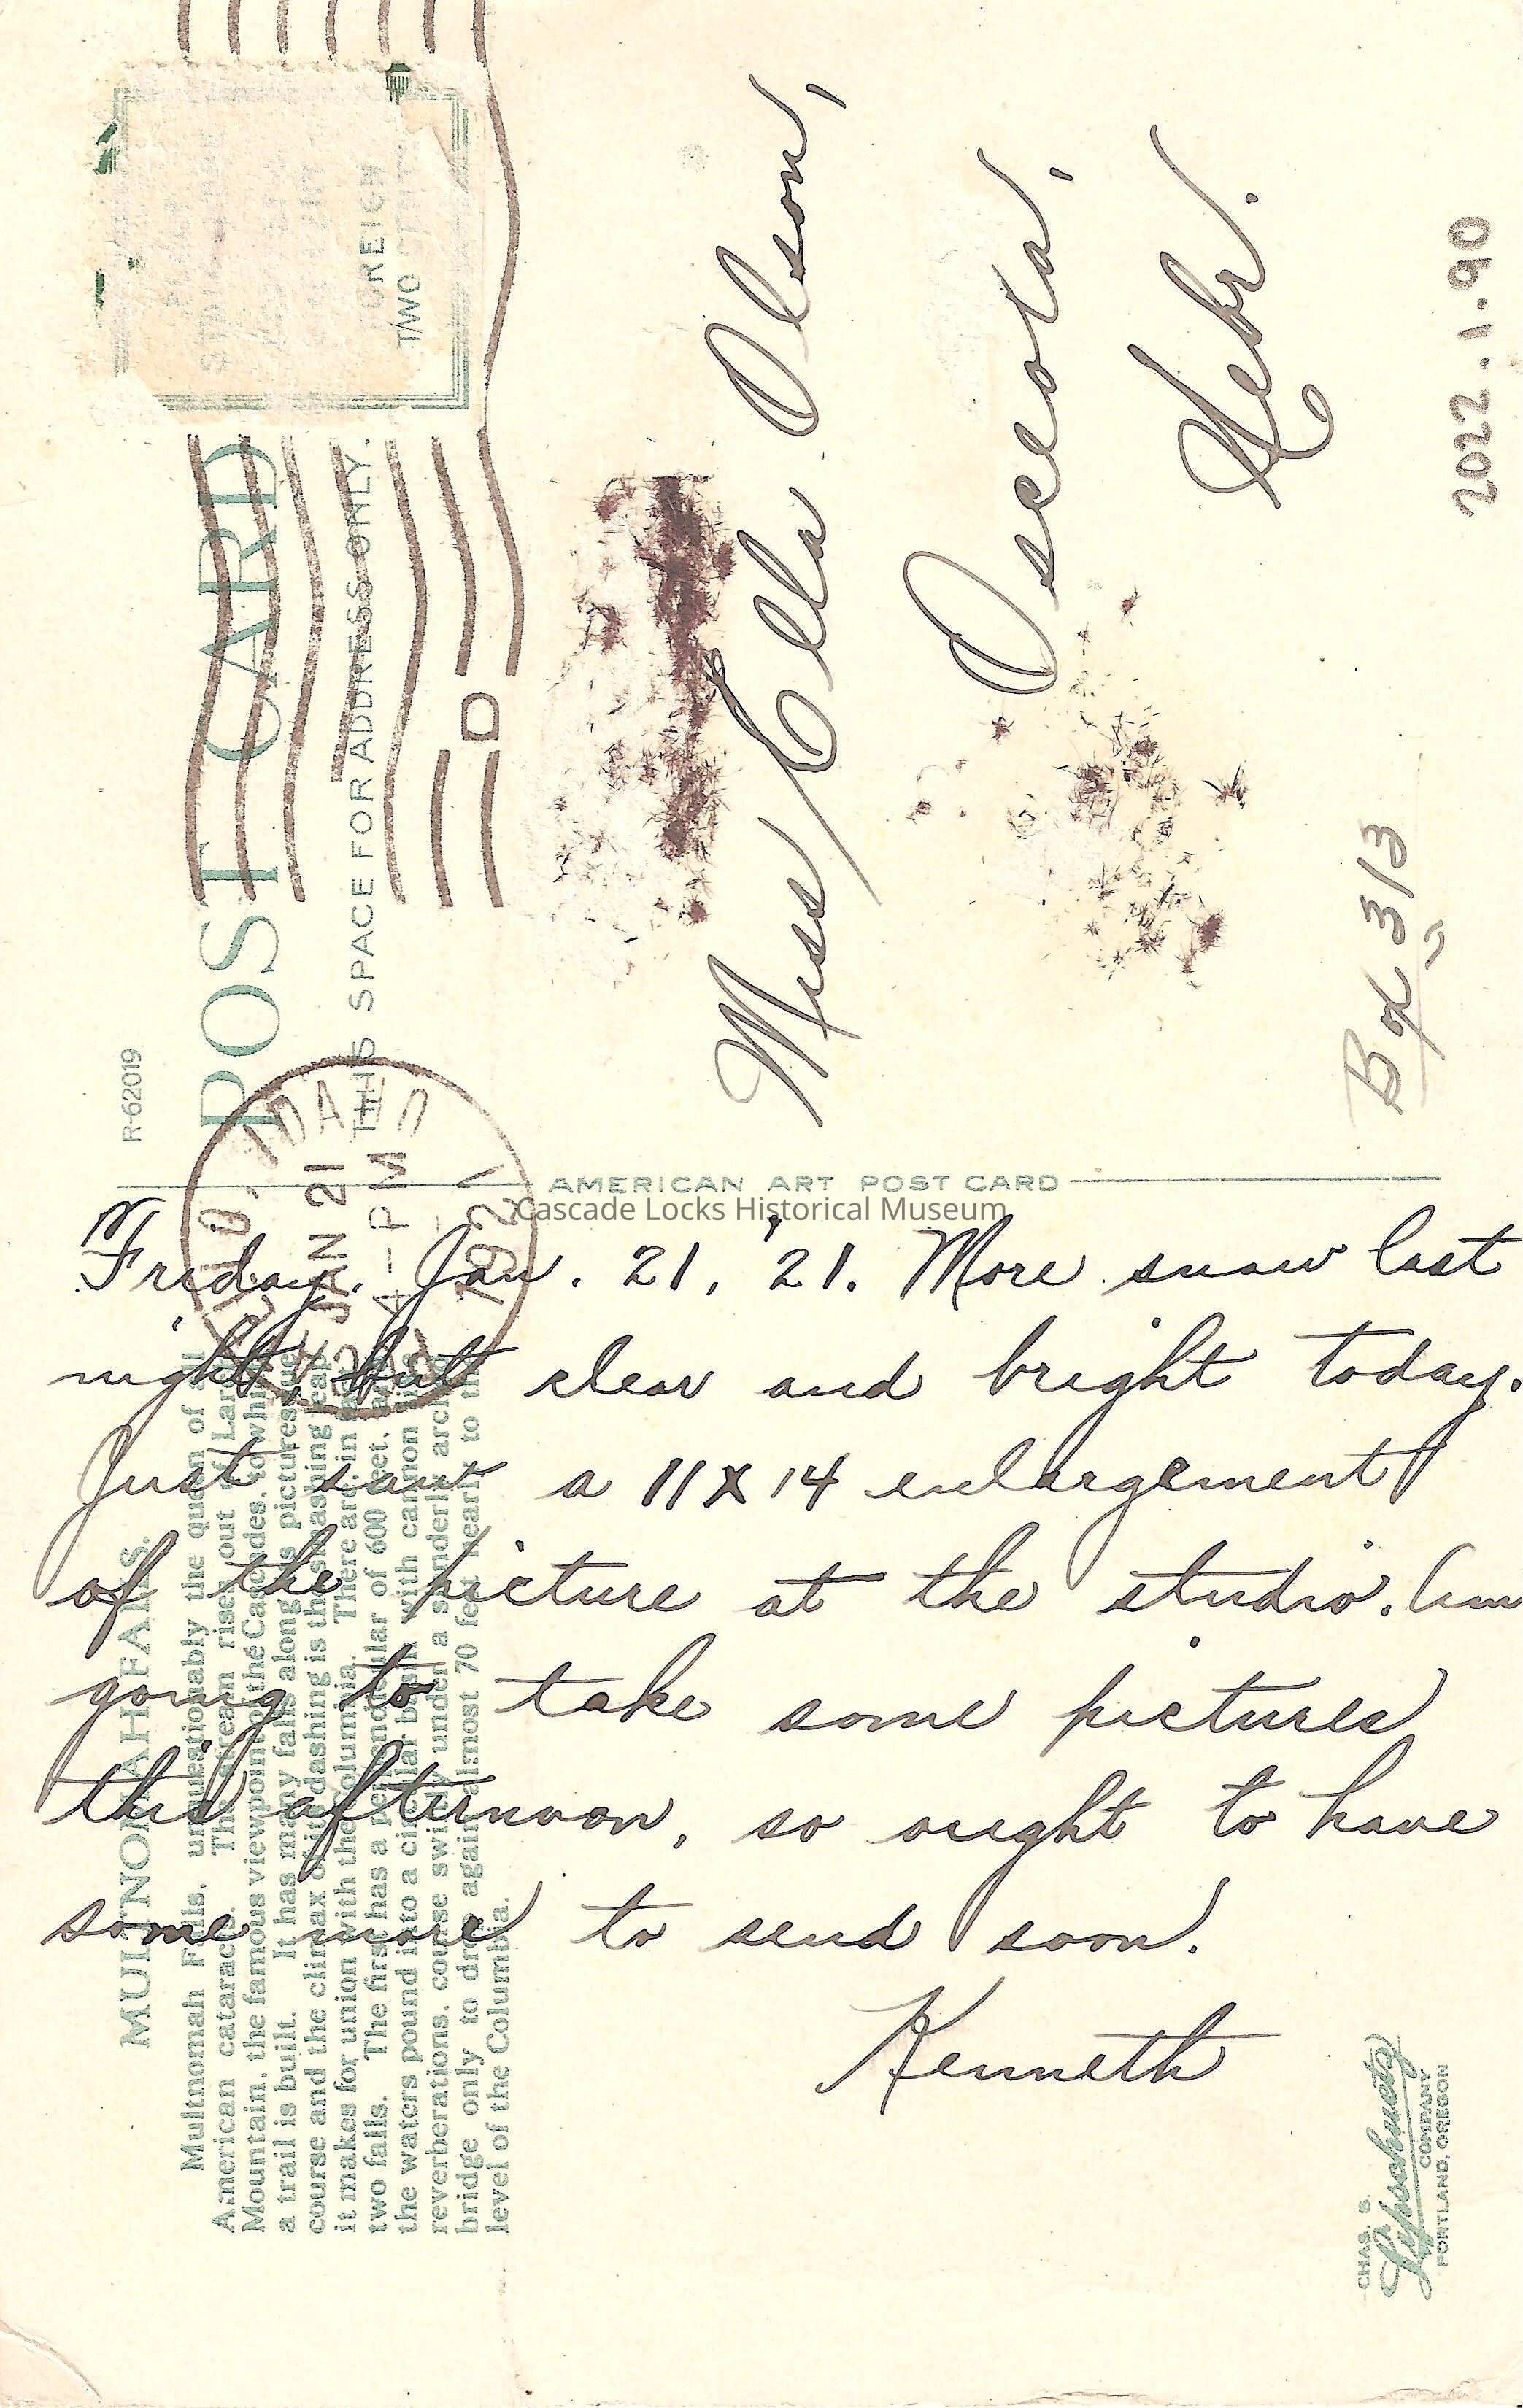 R-62019
POST CARD
THIS SPACE FOR ADDRESS ONLY.
TWO
IDAHO
JAN 21
4-PM
1921
D
Miss Ella Olson,
Osceola,
Nebr.
Box 313
2022.1.90
AMERICAN ART POST CARD
Cascade Locks Historical Museum
Friday. Jan. 21, '21. More snow last
night, but clear and bright today.
Just saw a 11x14 enlargement
of the picture at the studio. Am
going to take some pictures
this afternoon, so ought to have
some more to send soon.
Kenneth
MULTNOMAH FALLS.
Multnomah Falls, unquestionably the queen of all
American cataracts. The stream rises out of Larch
Mountain, the famous viewpoint of the Cascades, to which
a trail is built. It has many falls along its picturesque
course and the climax of its dashing is the smashing leap
it makes for union with the Columbia. There are in fact
two falls. The first has a perpendicular of 600 feet, and
the waters pound into a circular basin with cannon like
reverberations, course swiftly under a slenderly arched
bridge only to drop again almost 70 feet nearly to the
level of the Columbia.
CHAS. S.
Lipschuetz
COMPANY
PORTLAND, OREGON